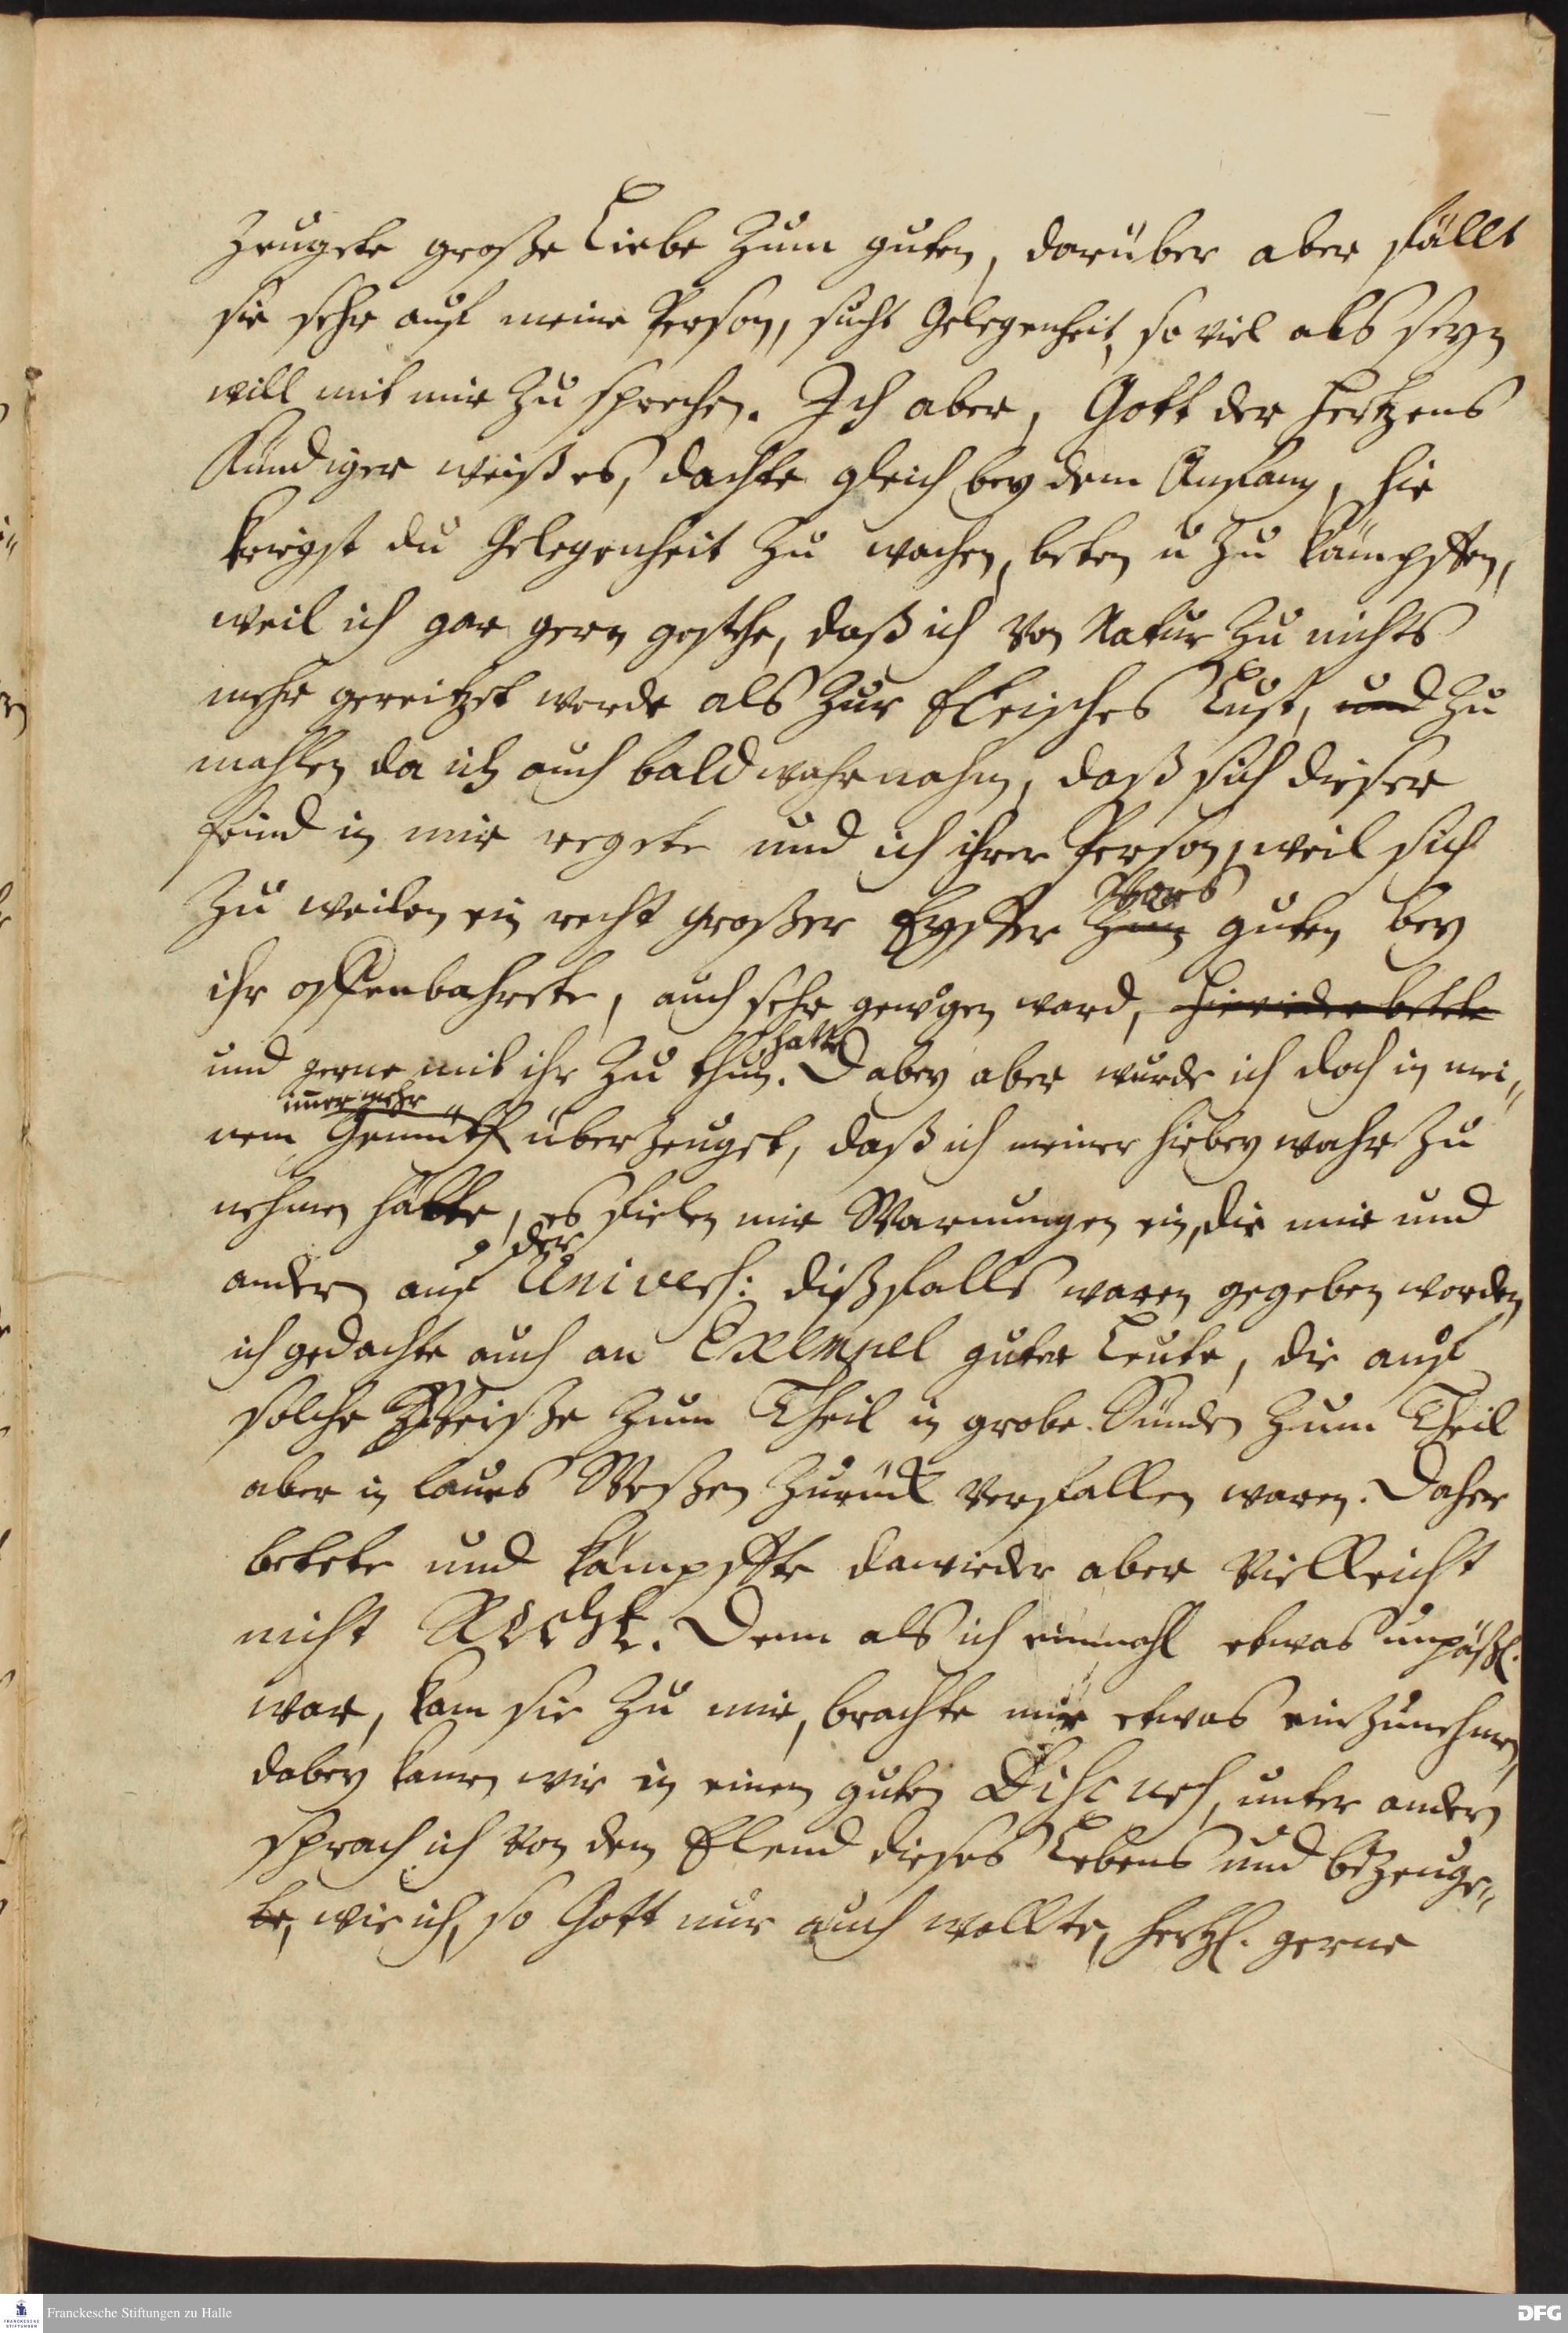 zeugete große Liebe zum guten, darüber aber fällt
sie sehr auf meine Person, sucht Gelegenheit, so viel als seyn
will mit mir zu sprechen. Ich aber, Gott der Hertzens
Kündiger weiß es, dachte gleich bey dem Anfang, hie
kriegst du Gelegenheit zu wachen, beten u zu kämpffen,
weil ich gar gern gestehe, daß ich von Natur zu nichts
mehr gereitzet werde als zur Fleisches Lust, und zu
mahlen da ich auch bald wahrnahm, daß sich dieser
feind in mir regete und ich ihrer Person, weil sich
zu weilen ein recht großer Eyffer zum guten bey
ihr offenbahrete, auch sehr gewogen ward, hierwieder betete
hatte
und gerne mit ihr zu thun. Dabey aber wurde ich doch in mei„
immer mehr
nem Gemüth überzeuget, daß ich meiner hiebey wahr zu
nehmen hätte, es fielen mir Warnungen ein, die mir und
der
andern auf Univers: dißfalls waren gegeben worden,
ich gedachte auch an Exempel guter Leute, die auf
solche Weiße zum Theil in grobe Sünden zum Theil
aber in laues Weßen zurück verfallen waren. Daher
betete und kämpffte dawieder aber vielleicht
nicht Recht. Denn als ich einmahl etwas unpäßl.
war, kam sie zu mir, brachte mir etwas einzunehmen,
dabey kamen wir in einen guten Discurs, unter andern
sprach ich von dem Elend dieses Lebens und bezeuge„
te, wie ich, so Gott nur auch wollte, hertzl. gerne
Franckesche Stiftungen zu Halle
DFG